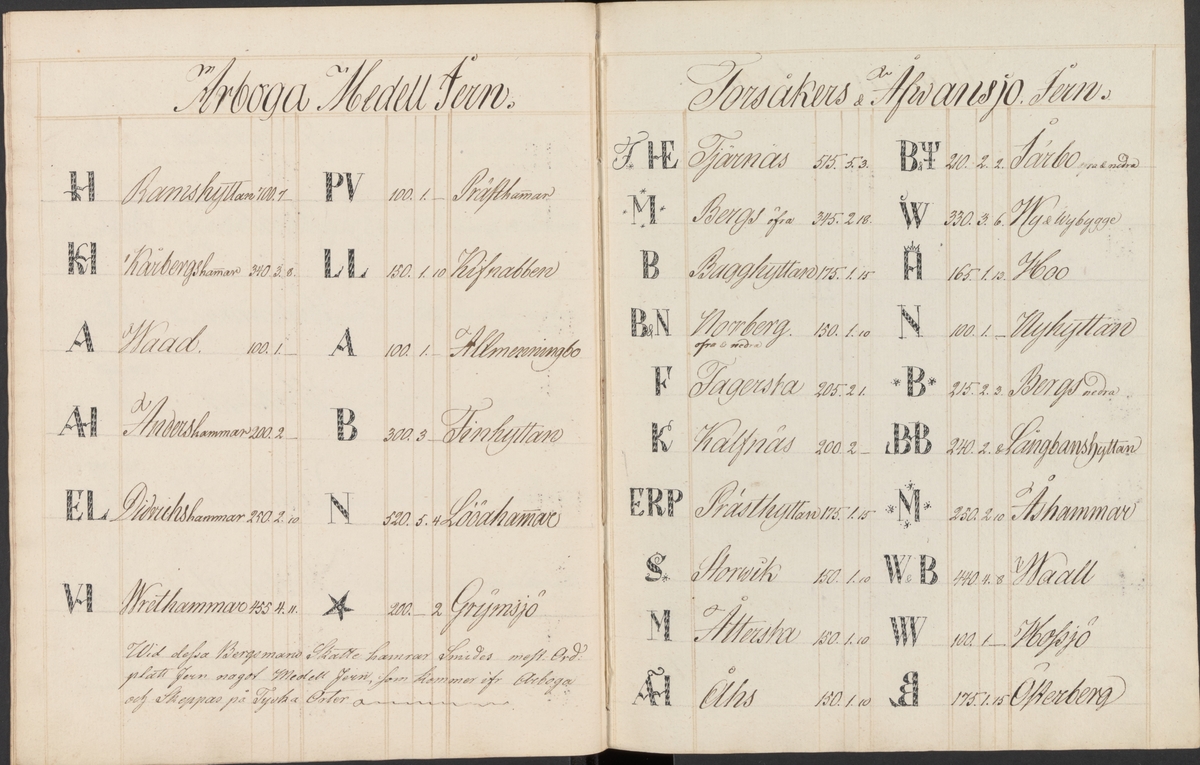 Arboga Medell Jern.
H Ramshyttan 100. 7
PV 100. 1. — Präfthamar
KH Kårbergshamar 340. 3. 8.
LL 150. 1. 10 Kifnabben
A Waad. 100. 1. —
A 100. 1. — Allmenningbo
AH Andershammar 200. 2 —
B 300. 3 — Finhyttan
EL Didrichshammar 250. 2. 10
N 520. 5. 4 Lööahamar
VH Wrethammar 455. 4. 11.
200. — 2 Grÿmsjö
Wid dessa Bergsmans Skatte hamrar Smides mest Ord:
plåti Jern något Medell Jern, som kommer ifr Arboga
och Skeppas på Tyska Orter
Torsåkers & Åfwansjo. Jern.
T. HE Tjärnäs 515. 5. 3.
BΨ 210. 2. 2. Jårbo öfra & nedra
M Bergs öfra 345. 2. 18.
W 330. 3. 6. Wy & Wybygge
B Bagghyttan 175. 1. 15
H 165. 1. 13. Hoo
B&N Norrberg. 150. 1. 10
öfra & nedra
N 100. 1. — Nyhyttan
F Fagersta 205. 2. 1.
B 215. 2. 3. Bergs nedra
K Kalfnäs 200. 2 —
BB 240. 2. 8 Långbanshyttan
ERP Prästhyttan 175. 1. 15
M 250. 2. 10 Åshammar
S. Storwik 150. 1. 10
W&B 440. 4. 8. Waall
M Åttersta 150. 1. 10
W 100. 1 — Hopsjö
ÅH Åhs 150. 1. 10
B 175. 1. 15 Ökerberg